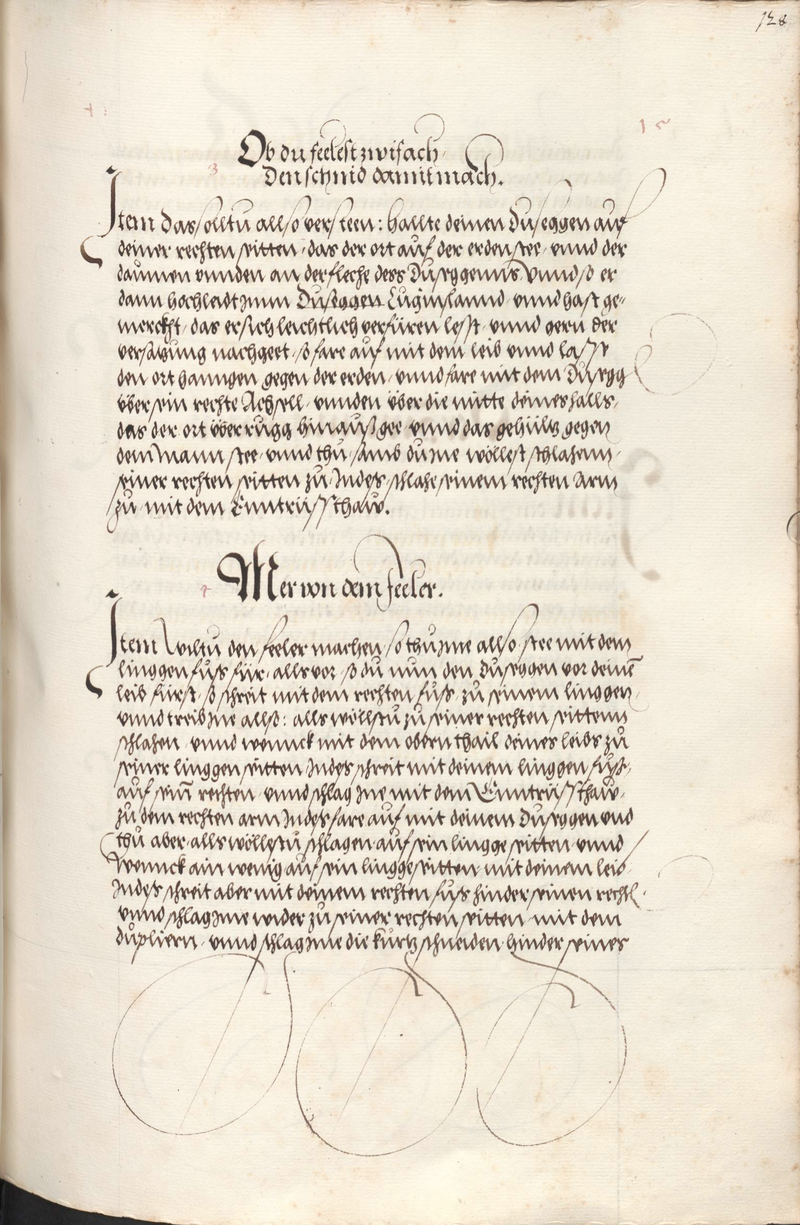 128
Ob du feelest zwifach
Den schnid damit mach.
Item das solltu allso versteen: hallte deinen Duseggen auf
deiner rechten seitten, das der ort auf der erden stee, vnnd der
daumen vnnden an der fleche dess Dusegges Vnnd so er
dann hoch leidt zum Duseggen Lug inns lannd vnnd hast ge-
merckht, das er sich leichtlich verfüren lesst, vnnd gern der
versatzung nachgeet, so fare auf mit dem leib vnnd lasst
den ort hanngen gegen der erden, vnnd fare mit dem Dusegg
vber sein rechte Achsell, vnnden vber die mitte deines halls,
das der ort vber rugg hinauss gee, vnnd das gehültz gegen
dem Mann stee, vnnd thu, samb du ime wöllest schlahenn,
seiner rechten seitten zu, Indes schlahe seinem rechten Arm
zu, mit dem Enntrüsthaw.
Mer von dem feeler.
Item Wiltu den feeler machen, so thu ime allso, stee mit dem
linggen fuss für, alls vor, so du nun den Duseggen vor deinē
leib fürst, so schreit mit dem rechten fuss, zu seinem linggen,
vnnd treib ine allso: alls wöllstu zu seiner rechten seittenn
schlahen, vnnd wennck mit dem obern thail deines leibs zu
seiner linggen seitten, Indes schreit mit deinem linggen fuss,
auf sein rechten, vnnd schlag ime mit dem Enntrüsthaw,
zu dem rechten arm Indes fare auf mit deinem Duseggen vnd
thu aber, alls wöllestu schlagen, auf sein lingge seitten, vnnd
Wennck ain wenig auf sein lingge seitten, mit deinem leib,
Indes schreit aber mit deinem rechten fuss hinder seinen recht.
vnnd schlag ime wider zu seiner rechten seitten, mit dem
dupliern, vnnd schlag ime die kurtz schneiden, hinder seines